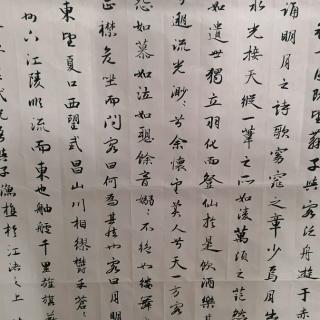 望蘇子與客泛舟游于赤
誦明月之詩歌窈窕之章少焉月出
水光接天縱一葦之所如凌萬頃之茫然
如遺世獨立羽化而登仙於是飲酒樂甚
遡流光渺〻兮余懷望美人兮天一方客
怨如慕如泣如訴餘音嫋〻不絕如縷舞
正襟危坐而問客曰何為其然也客曰月明
東望夏口西望武昌山川相繆鬱乎蒼〻
州下江陵順流而東也舳艫千里旌旗蔽
況吾與子漁樵於江渚之上